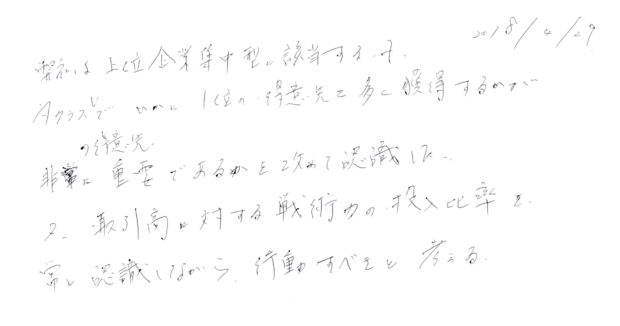 2018/4/29
弊社は上位企業集中型に該当する為、
Aクラスで いかに 1位の得意先を多く獲得するかが
の得意先
非常に重要であるかを改めて認識した。
又、取引高に対する戦術力の投入比率を
常に認識しながら、行動すべきと考える。